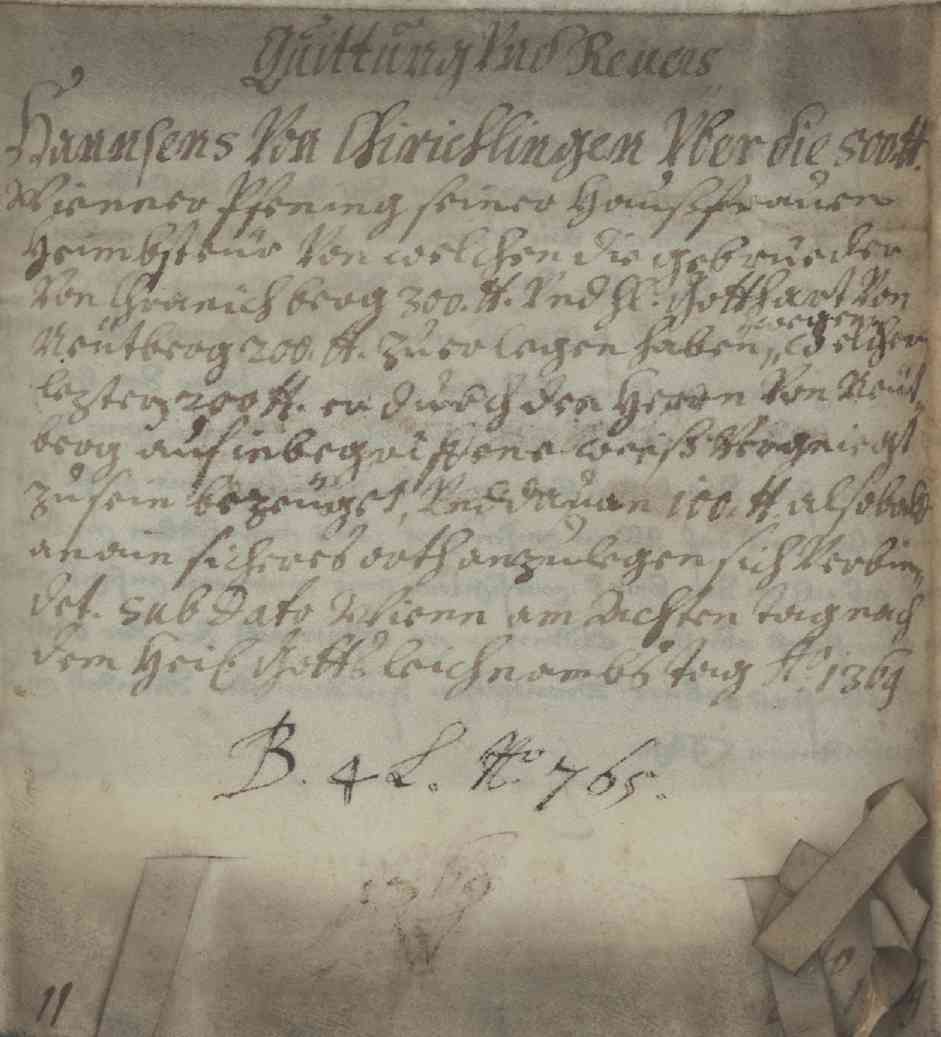 Quittung Vnd Reuers
Hannsens Von Chirichlingen Vber die 500 ℔.
Wienner Pfening seiner Haußfrauen
Heimbsteur Von welchen die gebrueder
Von Chranichberg 300. ℔. Vnd H: Gotthart Von
Neutberg 200. ℔. zuerlegen haben, wegen welcher
lezten 200 ℔. er durch den Herrn Von Neut
berg auf inbegriffene weiß Vergniegt
zu sein bezeuget, Vnd dauon 100. ℔. alsobald
an ein sicheres orth anzulegen sich Verbin„
det. Sub Dato Wienn am Achten tag nach
dem Heil: Gottsleichnambs tag Ao. 1369
B. 4 L. No 765.
1369
11